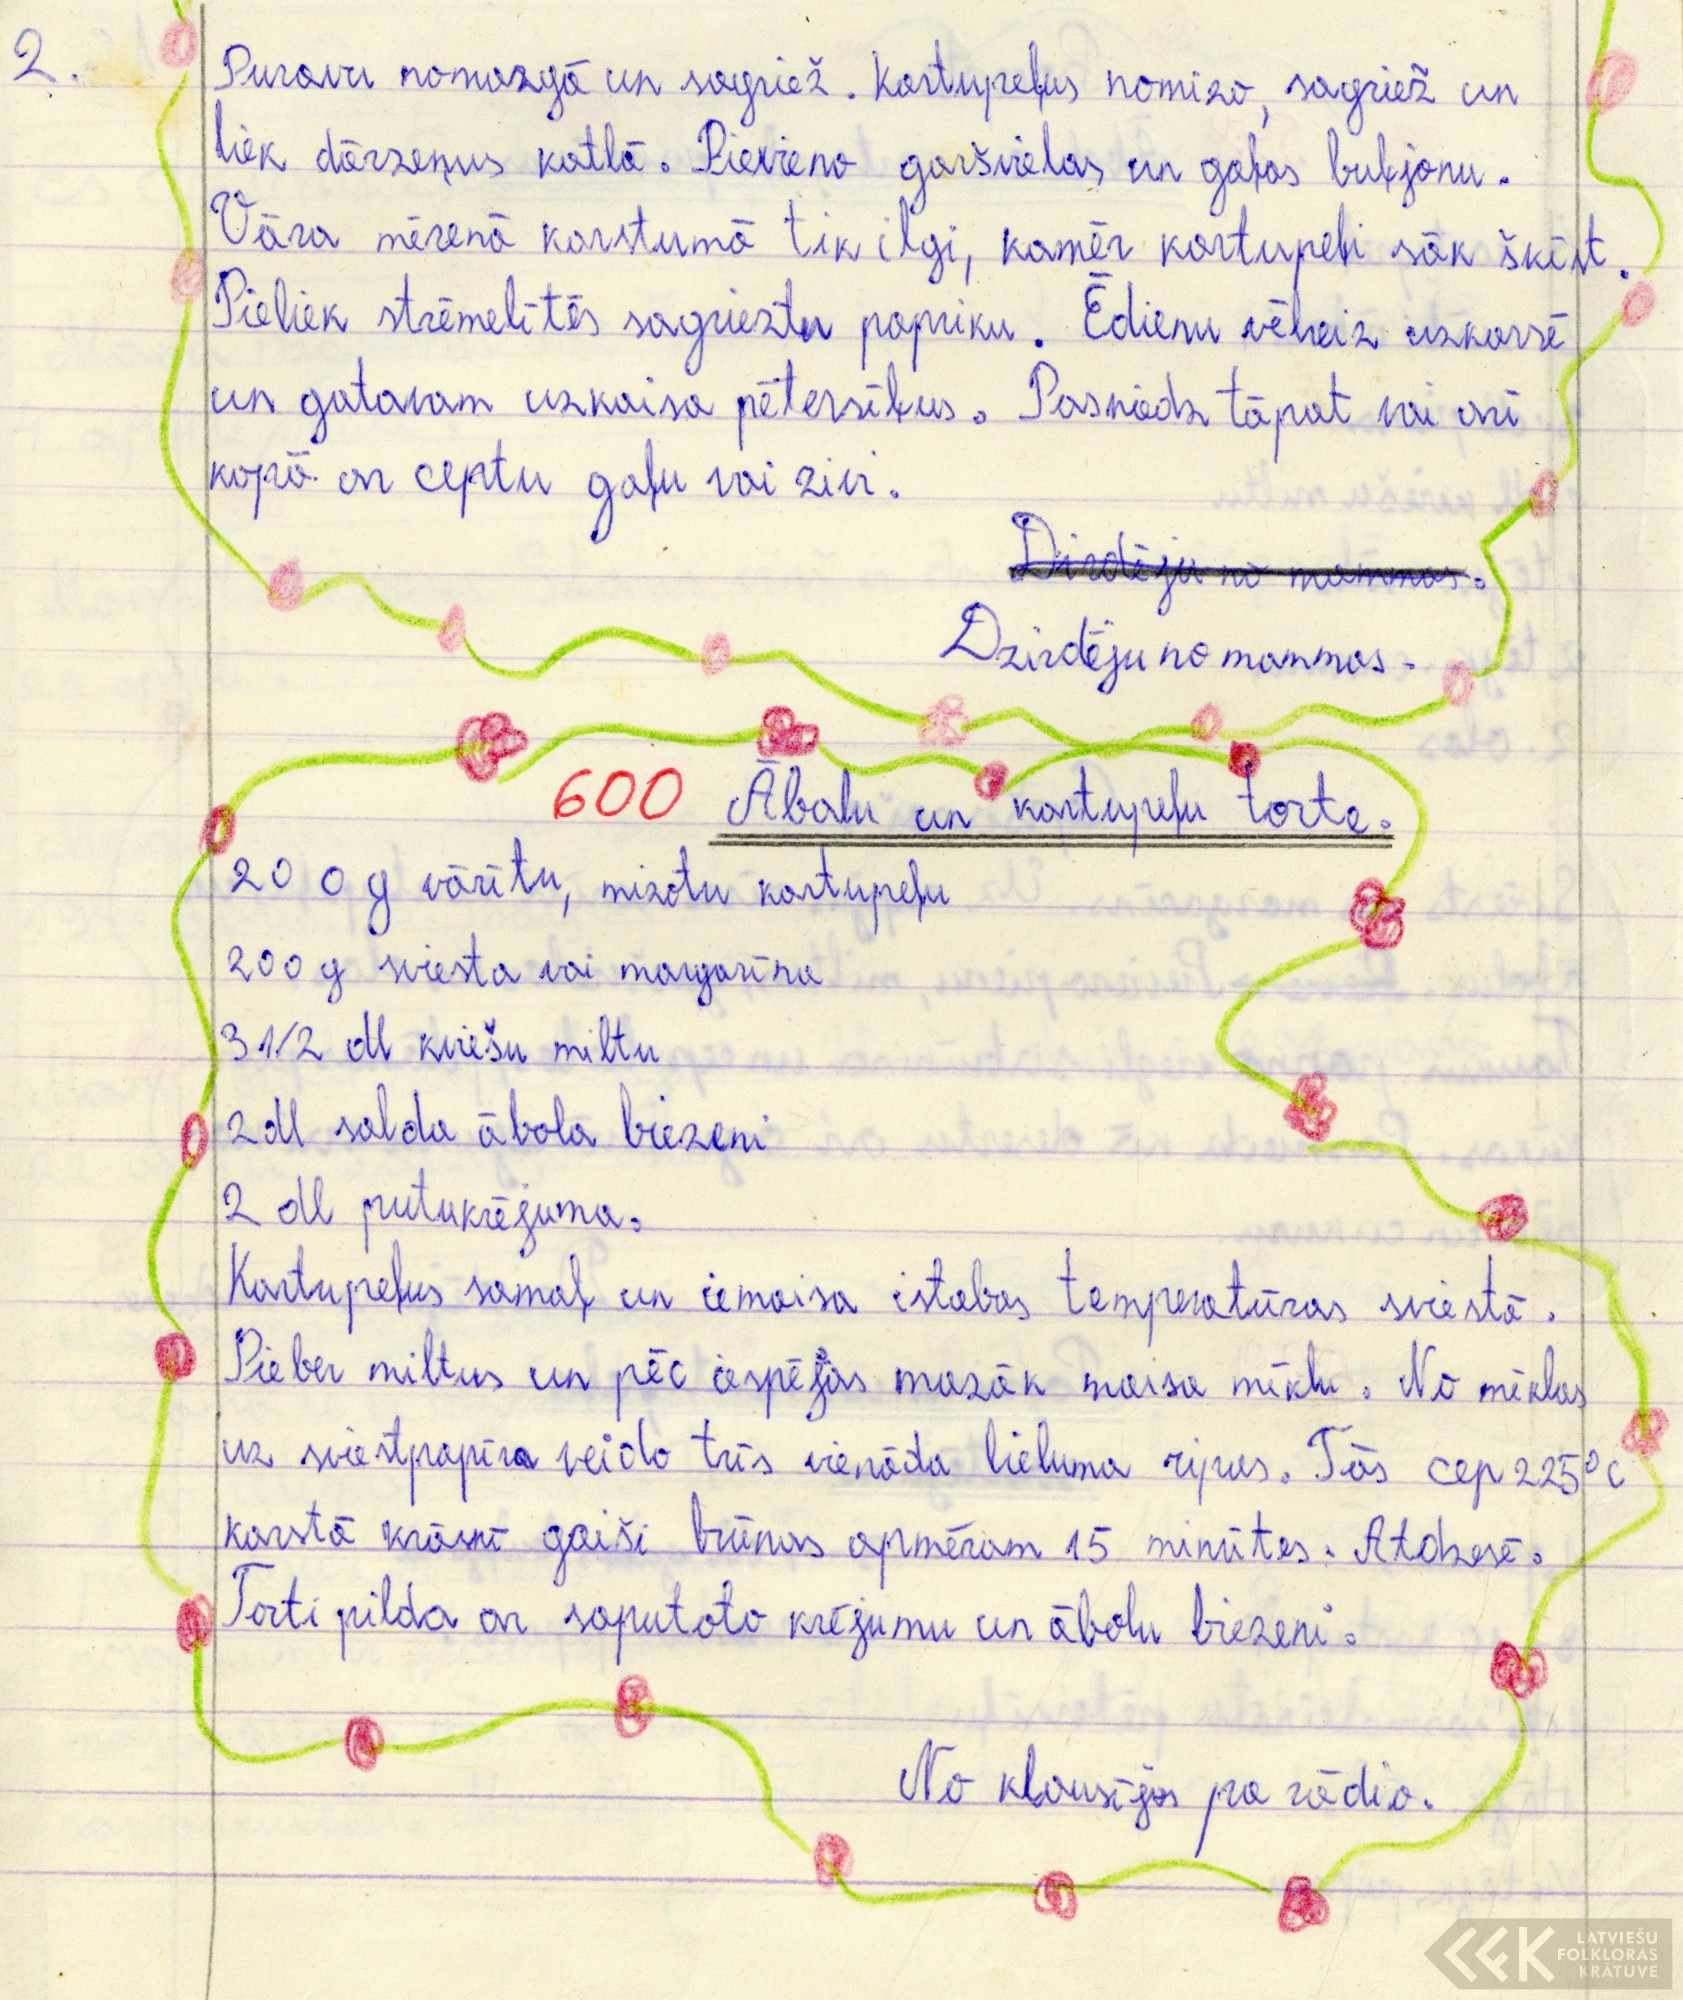 2.
Puravu nomazgā un sagriež. Kartupeļus nomizo, sagriež un
liek dārzeņus katlā. Pievieno garšvielas un gaļas buļjonu.
Vāra mērenā karstumā tik ilgi, kamēr kartupeļi sāk šķīst.
Pieliek strēmelītēs sagrieztu papriku. Ēdienu vēlreiz uzkarsē
un gatavam uzkaisa pētersīļus. Pasniedz tāpat vai arī
kopā ar ceptu gaļu vai zivi.
Dirdēju no mammas.
Dzirdēju no mammas.
600 Ābolu un kartupeļu torte.
200 g vārītu, mizotu kartupeļu
200 g sviesta vai margarīna
3 1/2 dl kviešu miltu
2 dl salda ābola biezeni
2 dl putukrējuma.
Kartupeļus samaļ un iemaisa istabas temperatūras sviestā.
Pieber miltus un pēc iespējas mazāk maisa mīklu. No mīklas
uz sviestpapīra veido trīs vienāda lieluma ripas. Tās cep 225°C
karstā krāsnī gaiši brūnas apmēram 15 minūtes. Atdzesē.
Torti pilda ar saputoto krējumu un ābolu biezeni.
No klausījos pa rādio.
LATVIEŠU
FOLKLORAS
KRĀTUVE